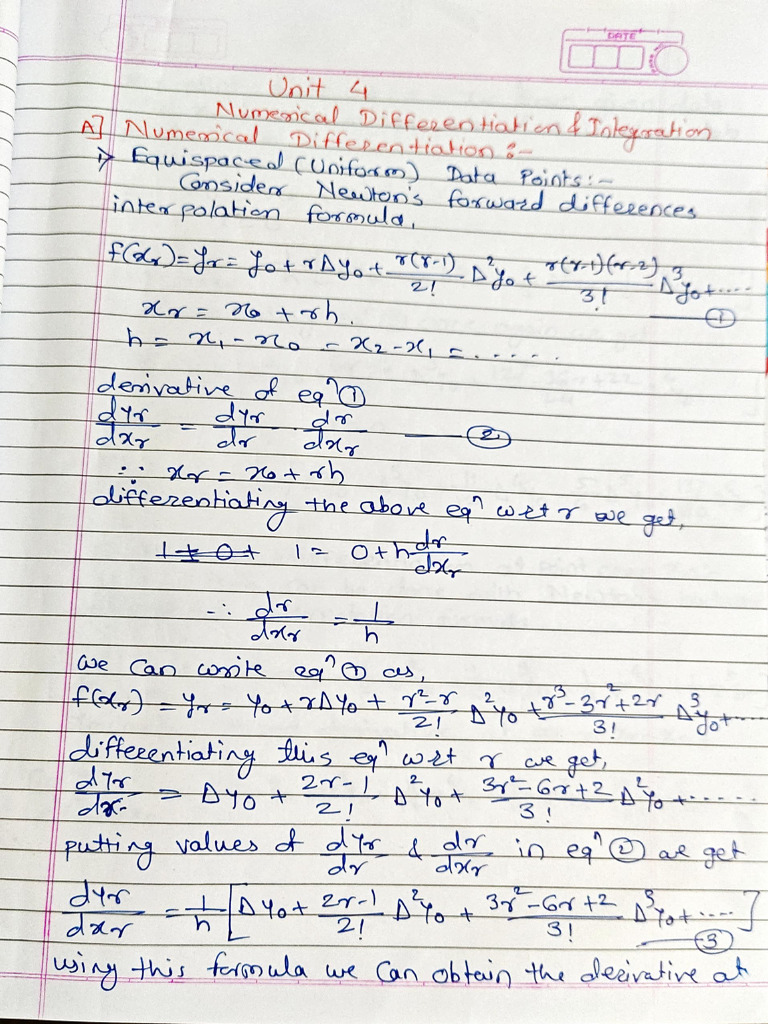 DATE
Unit 4
Numerical Differentiation & Integration
A] Numerical Differentiation :-
1> Equispaced (Uniform) Data Points :-
Consider Newton's forward differences
interpolation formula,
f(xᵣ) = yᵣ = y₀ + rΔy₀ + r(r-1)/2! Δ²y₀ + r(r-1)(r-2)/3! Δ³y₀ + .... — ①
xᵣ = x₀ + rh.
h = x₁ - x₀ = x₂ - x₁ = . . . . . .
derivative of eqⁿ ①
dyᵣ/dxᵣ = dyᵣ/dr · dr/dxᵣ — ②
∵ xᵣ = x₀ + rh
differentiating the above eqⁿ wrt r we get,
1 ± 0 + 1 = 0 + h dr/dxᵣ
∴ dr/dxᵣ = 1/h
we can write eqⁿ ① as,
f(xᵣ) = yᵣ = y₀ + rΔy₀ + r²-r/2! Δ²y₀ + r³-3r²+2r/3! Δ³y₀ + ....
differentiating this eqⁿ wrt r we get,
dyᵣ/dx = Δy₀ + 2r-1/2! Δ²y₀ + 3r²-6r+2/3! Δ²y₀ + ......
putting values of dyᵣ/dr & dr/dxᵣ in eqⁿ ② we get
dyᵣ/dxᵣ = 1/h [Δy₀ + 2r-1/2! Δ²y₀ + 3r²-6r+2/3! Δ³y₀ + ....] — ③
using this formula we can obtain the derivative at